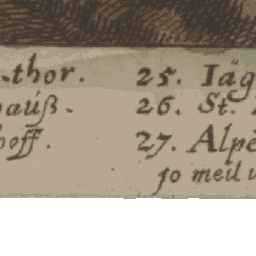 thor. 25. Iäg
auß. 26. St.
off. 27. Alpe
10 meil